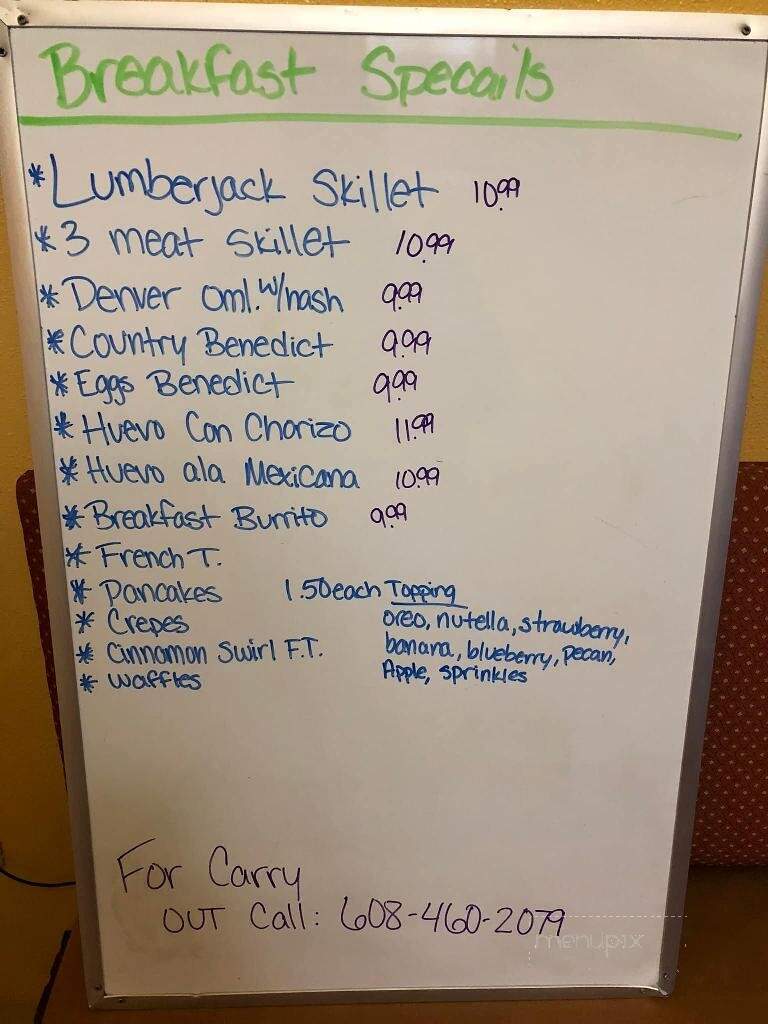 Breakfast Specails
* Lumberjack Skillet 10.99
* 3 meat Skillet 10.99
* Denver oml. w/hash 9.99
* Country Benedict 9.99
* Eggs Benedict 9.99
* Huevo Con Chorizo 11.99
* Huevo ala Mexicana 10.99
* Breakfast Burrito 9.99
* French T.
* Pancakes 1.50 each Topping
* Crepes oreo, nutella, strawberry,
* Cinnamon Swirl F.T. banana, blueberry, pecan,
* Waffles Apple, sprinkles
For Carry
OUT Call: 608-460-2079
menupix